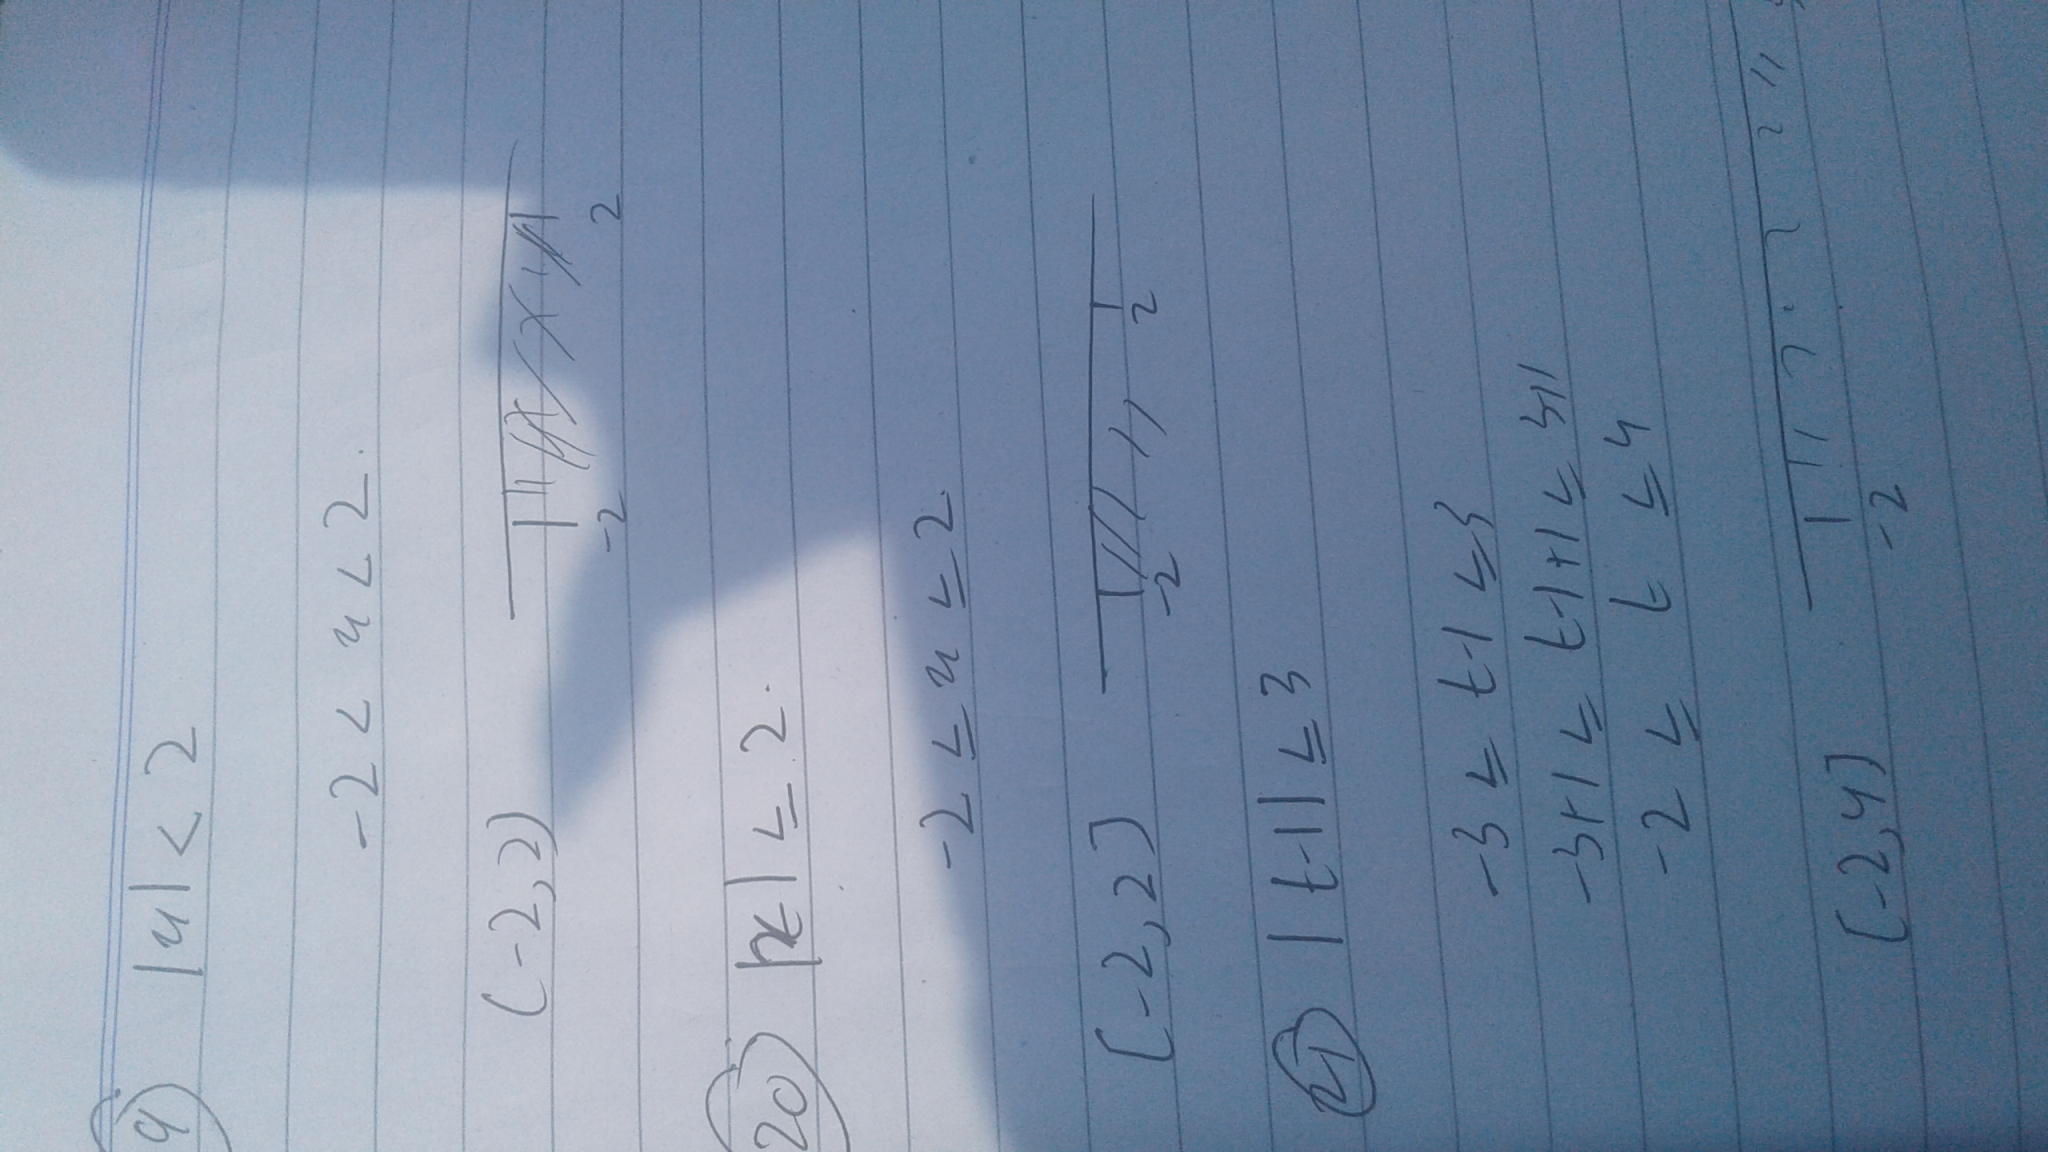 9) |x| < 2
-2 < x < 2.
(-2, 2)
-2 2
20) |x| ≤ 2.
-2 ≤ x ≤ 2.
[-2, 2]
-2 2
21) |t-1| ≤ 3
-3 ≤ t-1 ≤ 3
-3+1 ≤ t-1+1 ≤ 3+1
-2 ≤ t ≤ 4
[-2, 4]
-2